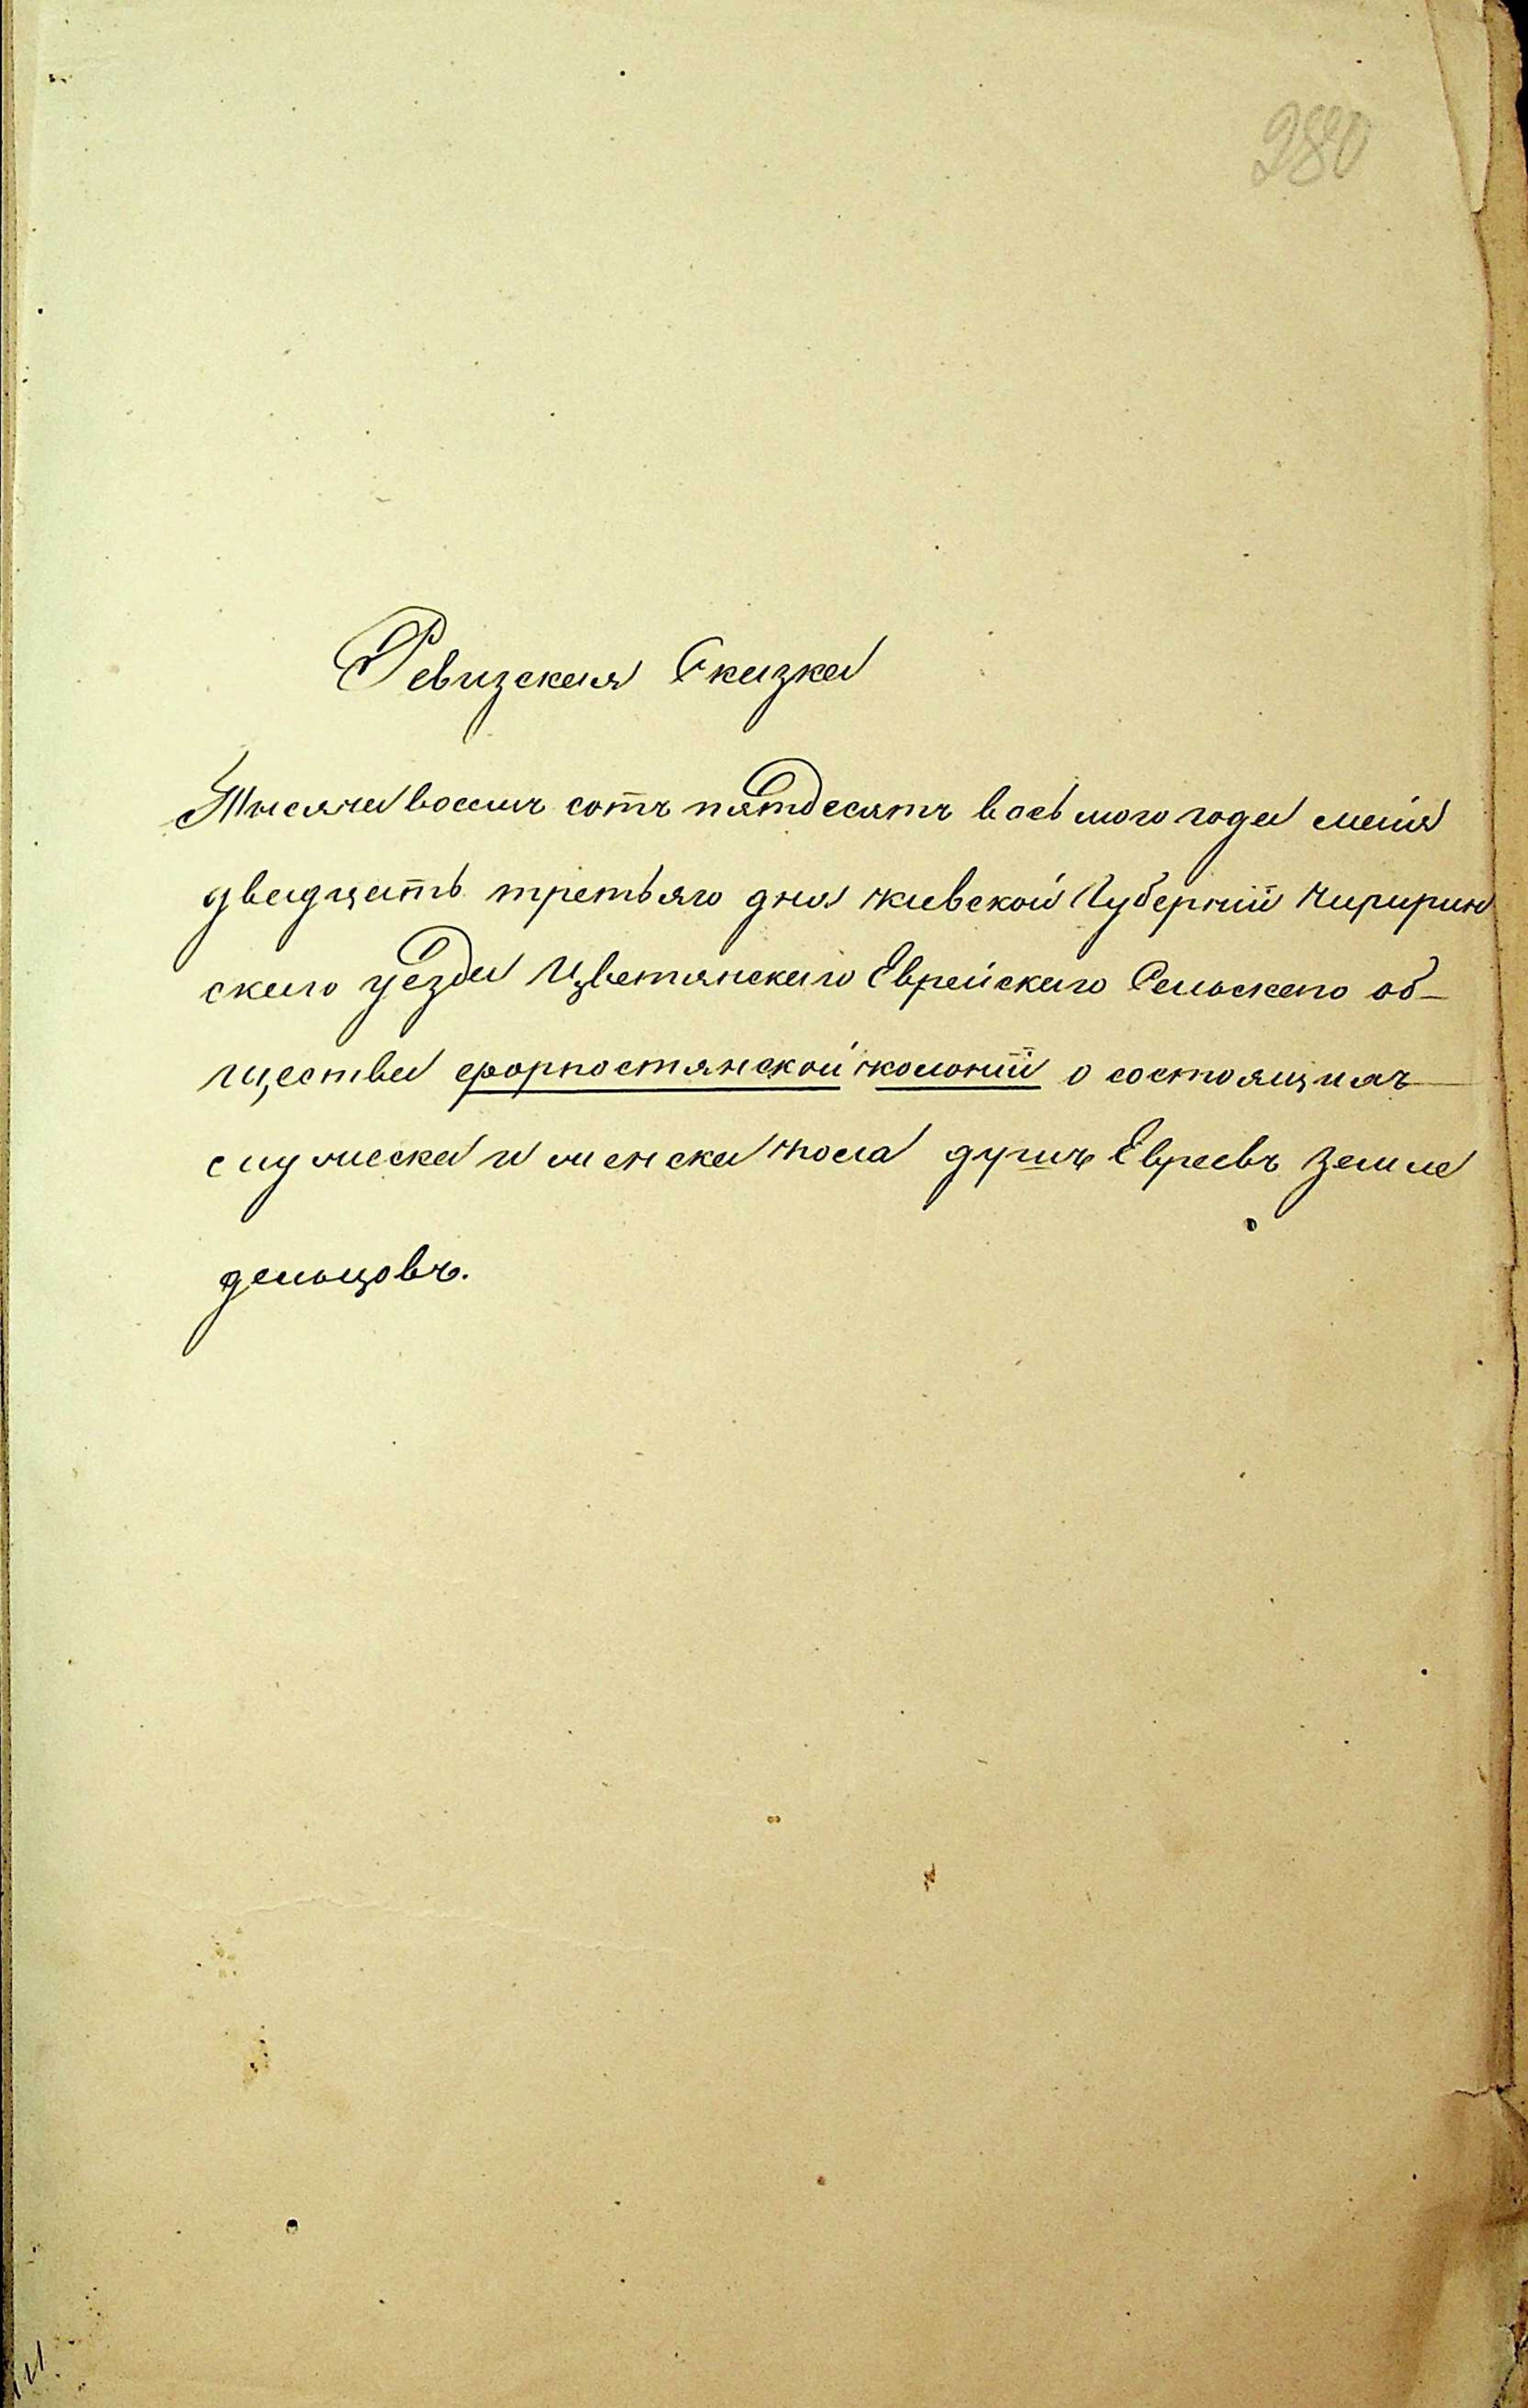 280
Ревизская Сказка
Тысяча восемъ сотъ пятдесятъ восьмого года маія
двадцать третьяго дня Киевской Губерніи Чигирин
скаго уезда Цветянскаго Еврейскаго Сельскаго об-
щества форпостянской колоніи о состоящихъ
мужеска и женска пола душъ Евреевъ земле
дельцовъ.